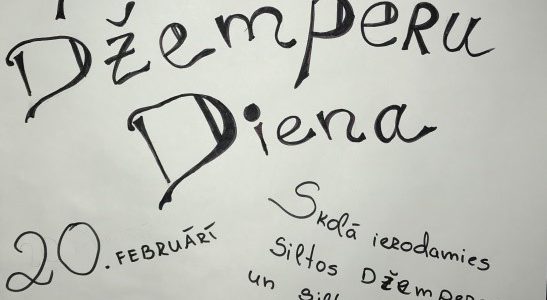 Džemperu
Diena
20. FEBRUĀRĪ
Skolā ierodamies
siltos Džemper
un